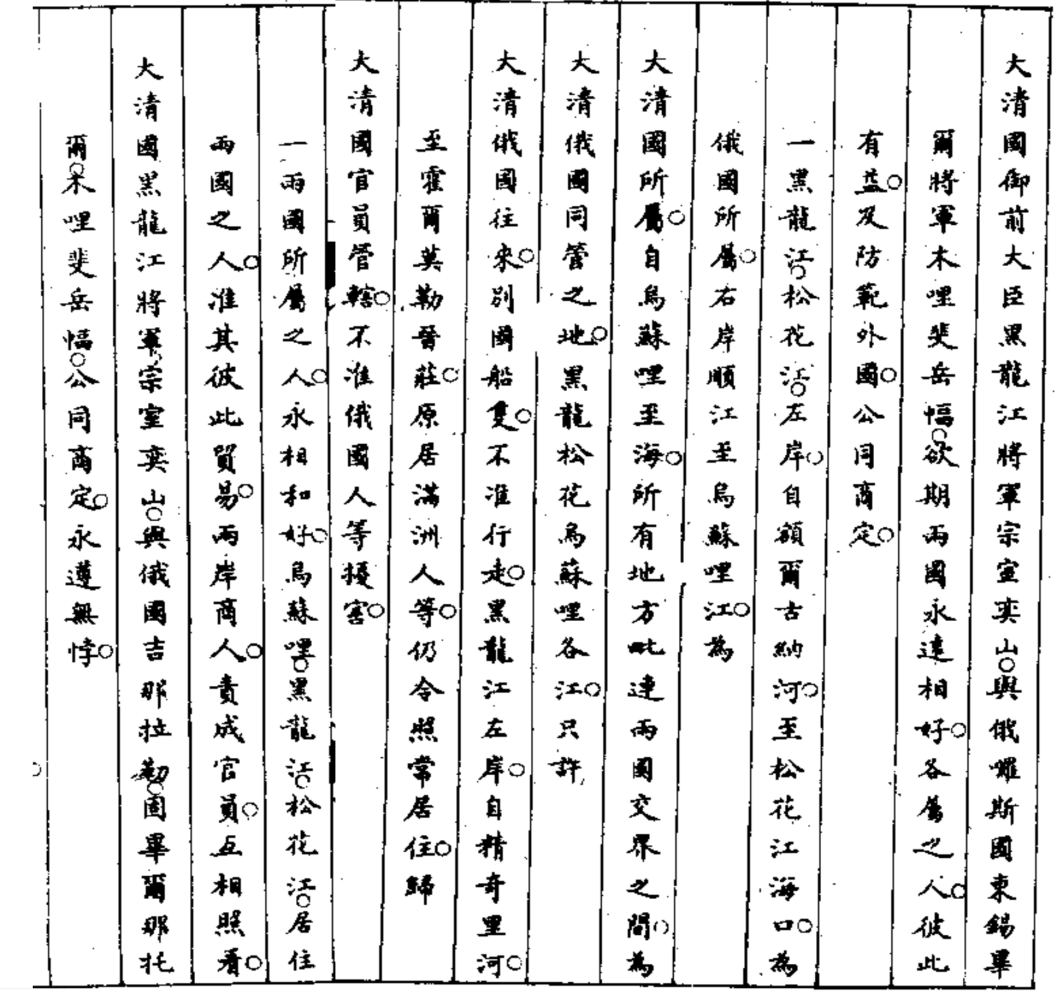 大清國御前大臣黑龍江將軍宗室奕山。與俄囉斯國東錫畢
爾將軍木哩斐岳幅。欲期兩國永遠相好。各屬之人。彼此
有益。及防範外國。公同商定。
一黑龍江。松花江。左岸。自額爾古納河。至松花江海口。為
俄國所屬。右岸順江至烏蘇哩江。為
大清國所屬。自烏蘇哩至海。所有地方毗連兩國交界之間。為
大清俄國同管之地。黑龍松花烏蘇哩各江。只許
大清俄國往來。別國船隻。不准行走。黑龍江左岸。自精奇里河。
至霍爾莫勒晉莊。原居滿洲人等。仍令照常居住。歸
大清國官員管轄。不准俄國人等擾害。
一兩國所屬之人。永相和好。烏蘇哩。黑龍江。松花江。居住
兩國之人。准其彼此貿易。兩岸商人。責成官員。互相照看。
大清國黑龍江將軍宗室奕山。與俄國吉那拉勒。固畢爾那托
爾。木哩斐岳幅。公同商定。永遵無悖。